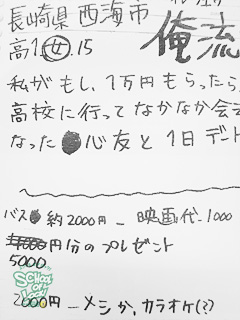 長崎県 西海市
高1 女.15
俺流
私がもし、1万円もらったら
高校に行ってなかなか会
なった 心友と1日デト
バス 約2000円 _ 映画代-1000
円分のプレゼント
5000
SCHOOL OF LOCK!
2000円 _ メシか、カラオケ(??)